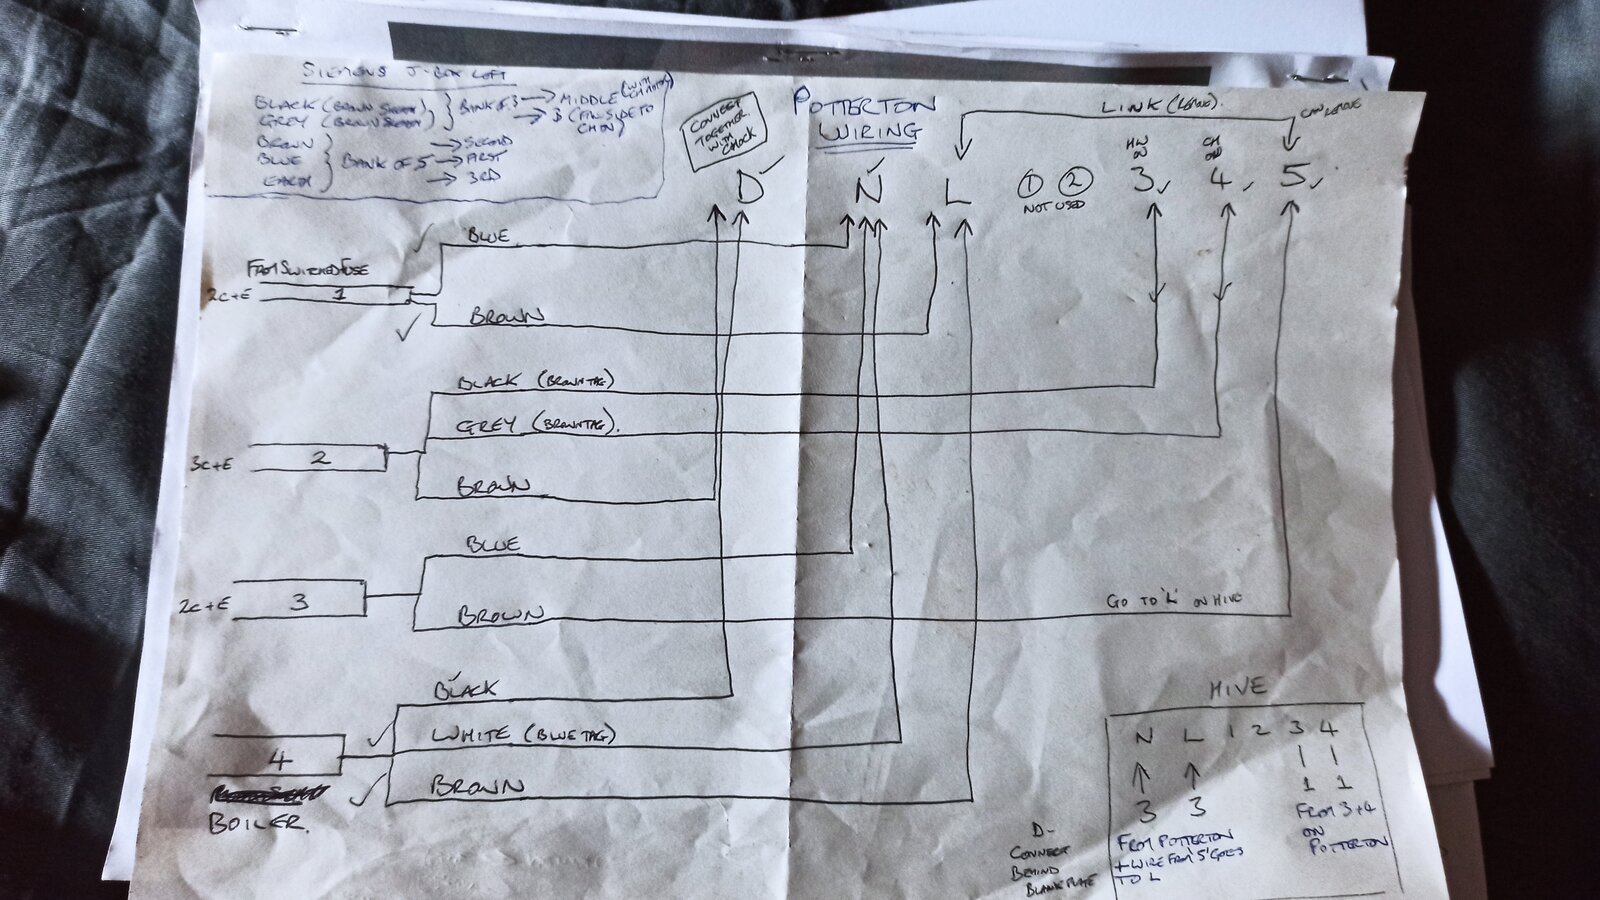 SIEMENS J-BOX LOFT
BLACK (BROWN
GREY (BROWN
BANK OF 3 → MIDDLE (WITH
→ 3
BROWN
BLUE
EARTH
BANK OF 5
→ SECOND
→ FIRST
→ 3RD
CONNECT
TOGETHER
WITH
CHOCK
POTTERTON
WIRING
LINK (REMOVE).
CAN REMOVE
HW
ON
CH
ON
D N L 1 2 3 4 5
NOT USED
BLUE
FROM SWITCHED FUSE
2C+E 1
BROWN
BLACK (BROWN TAG)
GREY (BROWN TAG).
3C+E 2
BROWN
BLUE
2C+E 3
BROWN
GO TO 'L' ON HIVE
BLACK
WHITE (BLUE TAG)
4
BROWN
BOILER.
HIVE
N L 1 2 3 4
3 3 1 1
FROM POTTERTON
+ WIRE FROM 5 GOES
TO L
FROM 3+4
ON
POTTERTON
D-
CONNECT
BEHIND
BLANK PLATE